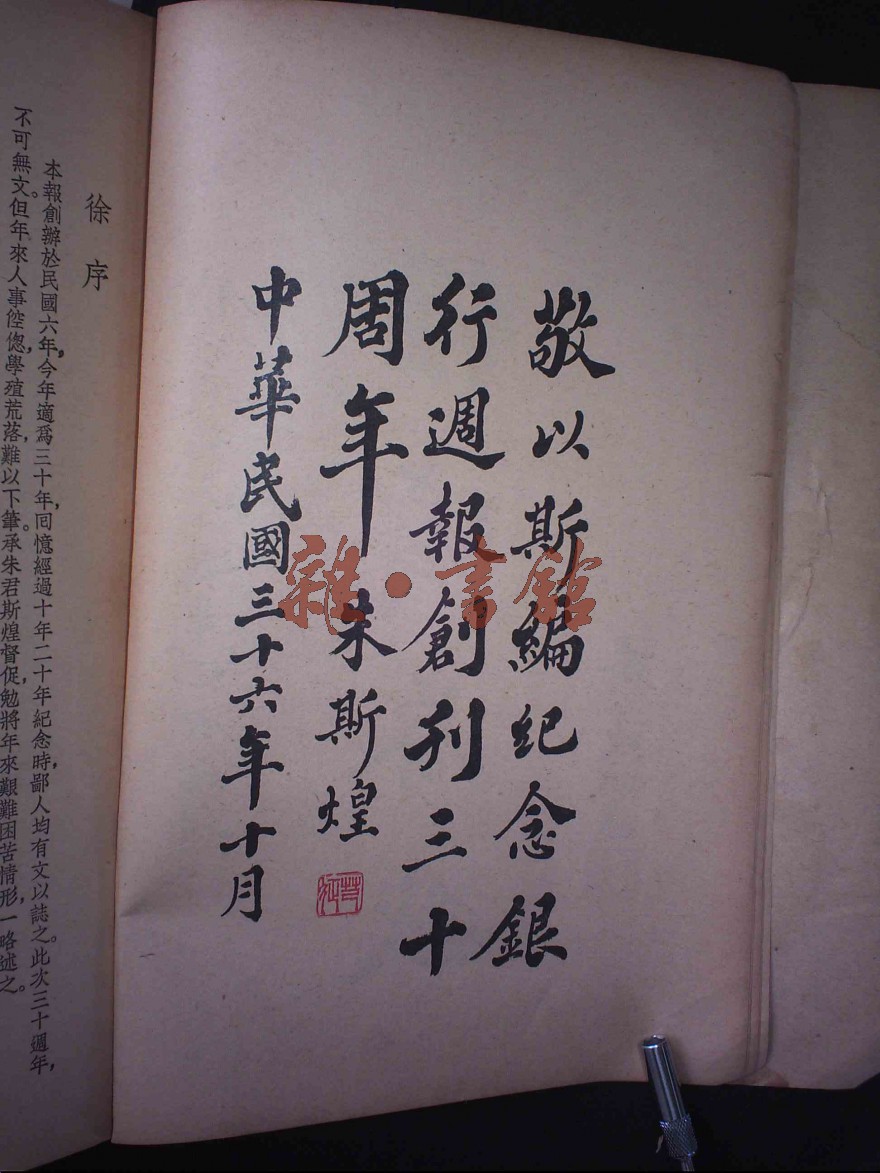 敬以斯編紀念銀
行週報創刊三十
周年 朱斯煌
中華民國三十六年十月
雜·書館
徐序
本報創辦於民國六年，今年適爲三十年，回憶經過十年二十年紀念時，鄙人均有文以誌之。此次三十週年，
不可無文。但年來人事倥偬，學殖荒落，難以下筆。承朱君斯煌督促，勉將年來艱難困苦情形，一略述之。